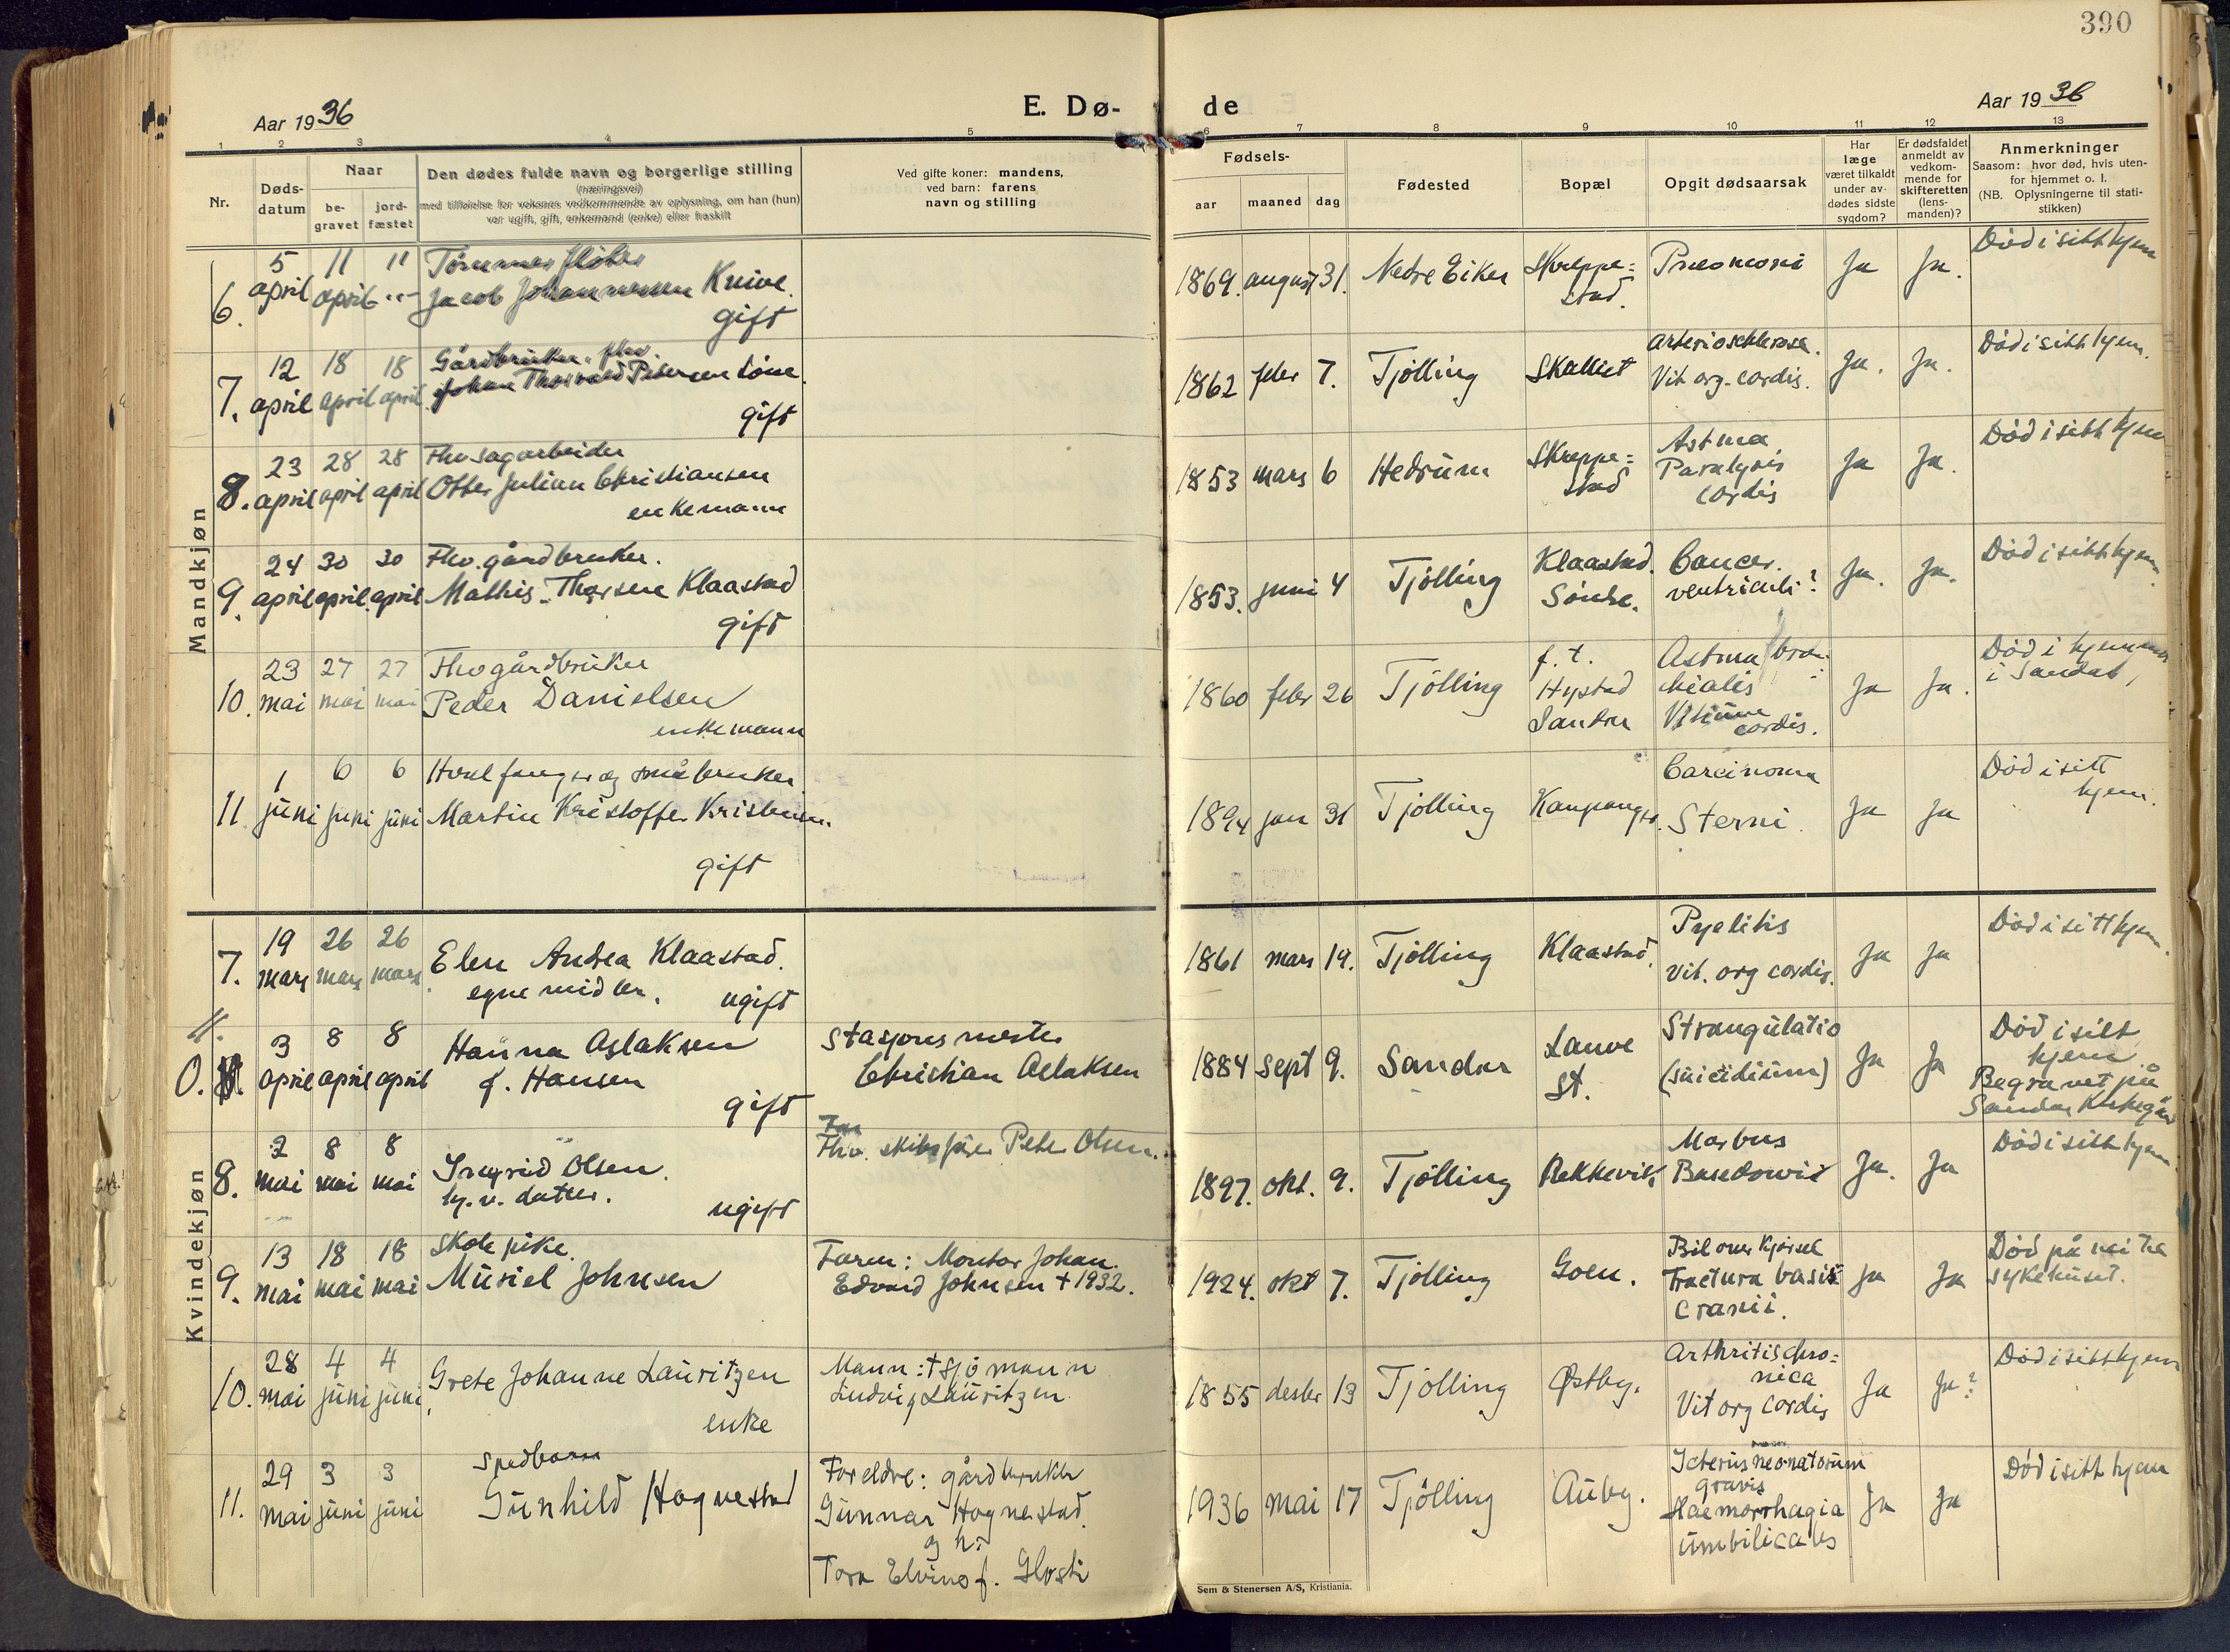 390
Aar 1936
E. Dø-
de
Aar 1936
1 2 3 4 5 6 7 8 9 10 11 12 13
Nr.
Døds-
datum
Naar
be-
gravet
jord-
fæstet
Den dødes fulde navn og borgerlige stilling
(næringsvei)
med tilføielse for voksnes vedkommende av oplysning, om han (hun)
var ugift, gift, enkemand (enke) eller fraskilt
Ved gifte koner: mandens,
ved barn: farens
navn og stilling
Fødsels-
aar maaned dag
Fødested
Bopæl
Opgit dødsaarsak
Har
læge
været tilkaldt
under av-
dødes sidste
sygdom?
Er dødsfaldet
anmeldt av
vedkom-
mende for
skifteretten
(lens-
manden)?
Anmerkninger
Saasom: hvor død, hvis uten-
for hjemmet o. l.
(NB. Oplysningerne til stati-
stikken)
Mandkjøn
6. 5 april 11 april 11
Jacob Johannessen Knive.
gift
1869. august 31. Nedre Eiker Skreppe=
stad.
Pneomoni Ja Ja. Død i sitt hjem
7. 12 april 18 april 18 april
Gårdbruker, fhv
Johan Thorvald Petersen Löve.
gift
1862 febr 7. Tjölling Skallist
Arteriosklerose.
Vit. org. cordis. Ja. Ja. Död i sitt hjem.
8. 23 april 28 april 28 april
Fhv sagarbeider
Otter Julian Christiansen
enkemann
1853 mars 6 Hedrum Skreppe=
stad
Astma
Paralysis
cordis
Ja Ja. Död i sitt hjem
9. 24 april 30 april 30 april
Fhv. gårdbruker.
Mathis Thorsen Klaastad
gift
1853. juni 4 Tjölling Klaastad.
Söndre.
Cancer.
ventriculi? Ja. Ja. Död i sitt hjem.
10. 23 mai 27 mai 27 mai
Fhv gårdbruker
Peder Danielsen
enkemann
1860 febr 26 Tjölling f. t.
Hystad
Sandar
Astma bron-
chialis
Vitium
cordis.
Ja Ja. Död i hjemmet
i Sandar,
11 1 juni 6 juni 6 juni
Hvalfanger og småbruker
Martin Kristoffer Kristensen.
gift
1894 jan 31 Tjölling Kaupang
Carcinoma
Sterni. Ja Ja Död i sitt
hjem.
Kvindekjøn
7. 19 mars 26 mars 26 mars
Elen Andrea Klaastad.
egne midler. ugift
1861 mars 19. Tjölling Klaastad.
Pyelitis
vit. org cordis. Ja Ja Död i sitt hjem.
0. 3 april 8 april 8 april
Hanna Aslaksen
f. Hansen
gift
Stasjonsmester
Christian Aslaksen
1884 Sept 9. Sandar Lauve
St.
Strangulatio
(suicidium) Ja Ja Död i sitt
hjem
Begravet på
Sandar Kirkegård
8. 2 mai 8 mai 8 mai
Ingrid Olsen.
hj. v. datter.
ugift
Far
Fhv. skibsfører Peter Olsen.
1897. okt. 9. Tjölling Rekkevik
Morbus
Basedowii Ja. Ja Död i sitt hjem
9. 13 mai 18 mai 18 mai
Skolepike.
Musiel Johnsen
Faren: Montør Johan
Edvard Johnsen † 1932.
1924. okt 7. Tjölling Goen.
Bil overkjørsel
Fractura basis
Cranii.
Ja Ja Död på vei til
sykehuset.
10. 28 mai 4 juni 4 juni
Grete Johanne Lauritzen
enke
Mann: † sjömann
Ludvig Lauritzen
1855 desbr 13 Tjölling Østby.
Arthritis chro=
nica
Vit org cordis Ja Ja? Död i sitt hjem
11. 29 mai 3 juni 3 juni
Spedbarn
Gunhild Hognestad
Foreldre: gårdbruker
Gunnar Hognestad
og h.
Tora Elvine f.
1936 mai 17 Tjölling Auby.
Icterus neonatorum
gravis
Haemorrhagia
umbilicales
Ja Ja Död i sitt hjem
Sem & Stenersen A/S, Kristiania.